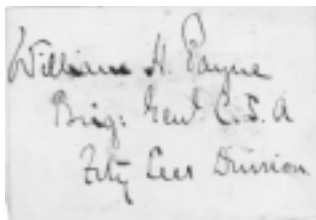 William H. Payne
Brig: Genl C.S.A
Fitz Lees Division